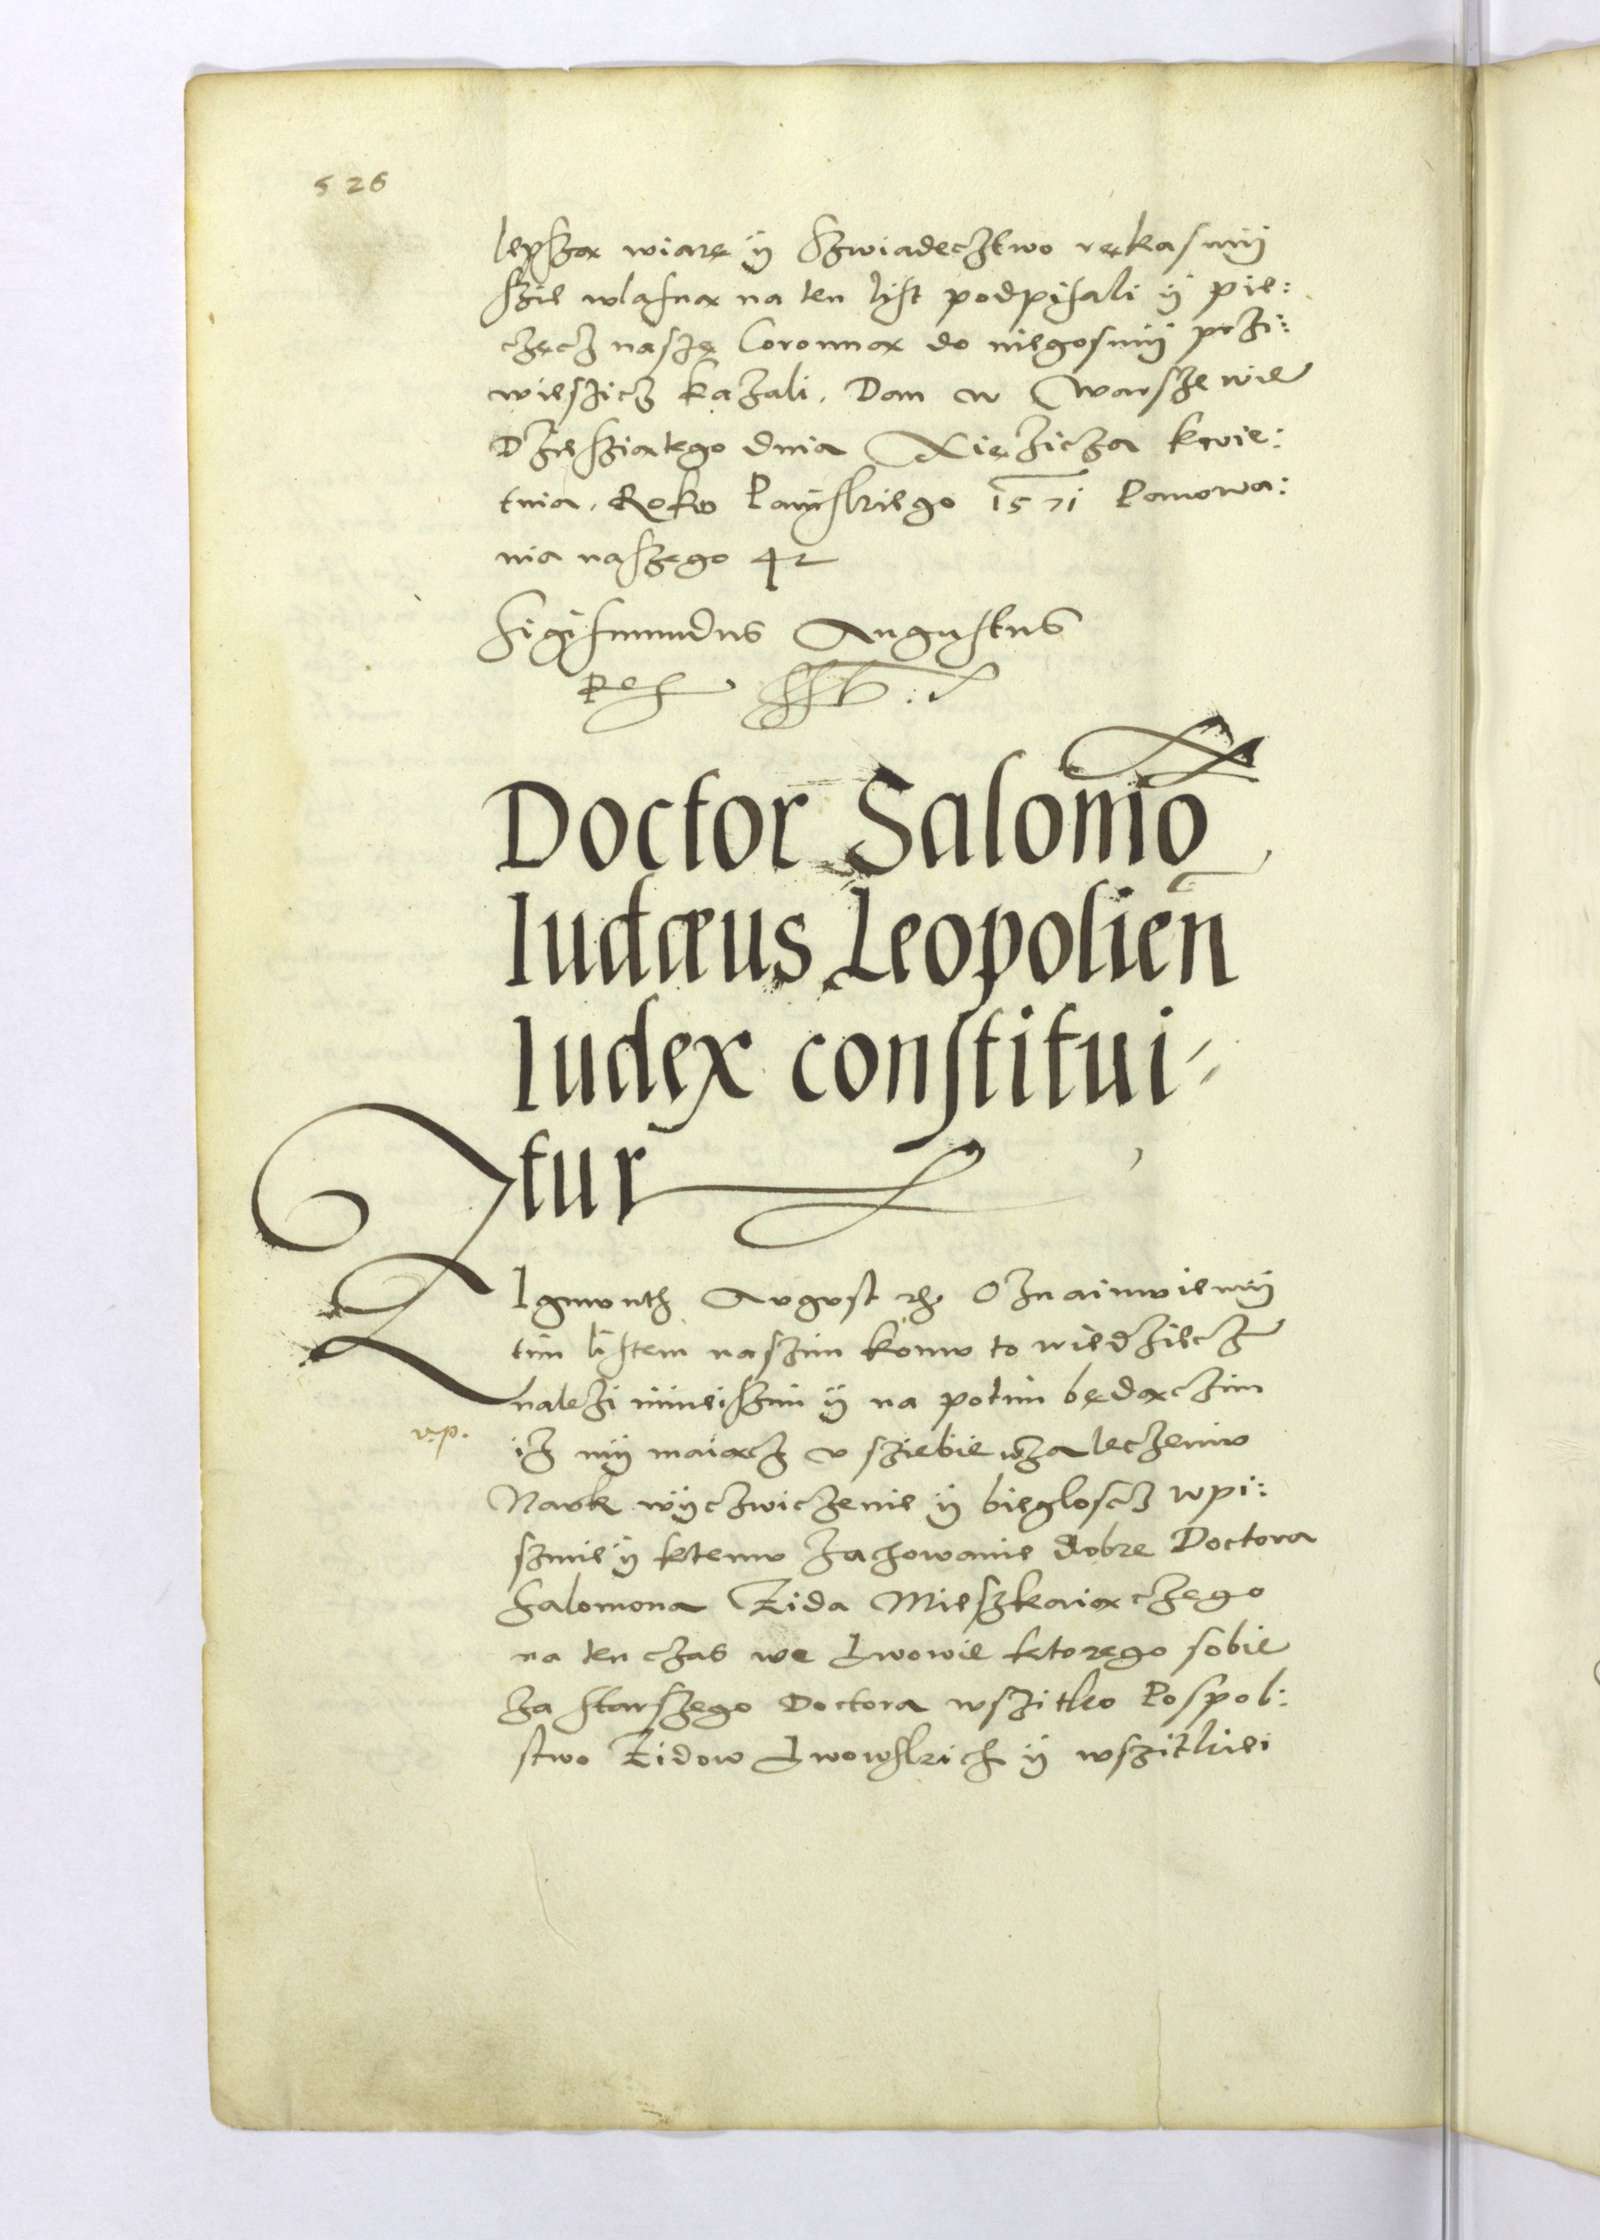 526
lepszą wiarę ÿ Szwiadecztwo rękąsmÿ
szie własną na ten list podpisali ÿ pie:
częcz naszę Coronną do niegosmÿ przi:
wieszicz kazali. Dan w Warszewie
Dziesziątego dnia Xiężicza kwie:
tnia. Roku Pańskiego 1571 Panowa:
nia naszego 42
Sigismundus Augustus
Rex
Doctor Salomo
Iudæus Leopolien
Iudex constitui-
tur
ZIgmunth August etc. Oznaimuiemÿ
tim listem naszim komu to wiedziecz
nalezi ninieiszim ÿ na potim będączim
v.p.
iz mÿ maiącz u sziebie wzaleczeniu
Nauk wÿczwiczenie ÿ biegloscz wpi:
szmie ÿ ktemu zachowanie dobre Doctora
Salomona Zida Mieszkaiączego
na ten czas we Lwowie ktorego sobie
za starszego Doctora wszitko Pospol:
stwo Zidow Lwowskich ÿ wszitkiei